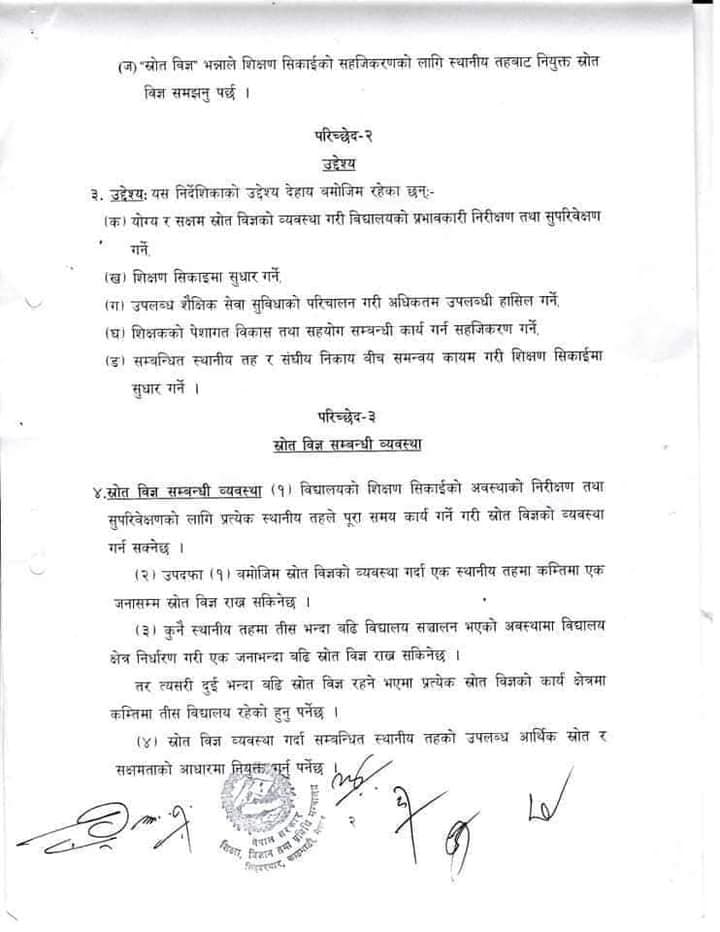 (ज) "स्रोत विज्ञ" भन्नाले शिक्षण सिकाईको सहजिकरणको लागि स्थानीय तहबाट नियुक्त स्रोत
विज्ञ समझनु पर्छ ।
परिच्छेद-२
उद्देश्य
३. उद्देश्य: यस निर्देशिकाको उद्देश्य देहाय बमोजिम रहेका छन्:-
(क) योग्य र सक्षम स्रोत विज्ञको व्यवस्था गरी विद्यालयको प्रभावकारी निरीक्षण तथा सुपरिवेक्षण
गर्ने,
(ख) शिक्षण सिकाइमा सुधार गर्ने,
(ग) उपलब्ध शैक्षिक सेवा सुविधाको परिचालन गरी अधिकतम उपलब्धी हासिल गर्ने,
(घ) शिक्षकको पेशागत विकास तथा सहयोग सम्बन्धी कार्य गर्न सहजिकरण गर्ने,
(ङ) सम्बन्धित स्थानीय तह र संघीय निकाय बीच समन्वय कायम गरी शिक्षण सिकाईमा
सुधार गर्ने ।
परिच्छेद-३
स्रोत विज्ञ सम्बन्धी व्यवस्था
४.स्रोत विज्ञ सम्बन्धी व्यवस्था (१) विद्यालयको शिक्षण सिकाईको अवस्थाको निरीक्षण तथा
सुपरिवेक्षणको लागि प्रत्येक स्थानीय तहले पूरा समय कार्य गर्ने गरी स्रोत विज्ञको व्यवस्था
गर्न सक्नेछ ।
(२) उपदफा (१) बमोजिम स्रोत विज्ञको व्यवस्था गर्दा एक स्थानीय तहमा कम्तिमा एक
जनासम्म स्रोत विज्ञ राख्न सकिनेछ ।
(३) कुनै स्थानीय तहमा तीस भन्दा बढि विद्यालय सञ्चालन भएको अवस्थामा विद्यालय
क्षेत्र निर्धारण गरी एक जनाभन्दा बढि स्रोत विज्ञ राख्न सकिनेछ ।
तर त्यसरी दुई भन्दा बढि स्रोत विज्ञ रहने भएमा प्रत्येक स्रोत विज्ञको कार्य क्षेत्रमा
कम्तिमा तीस विद्यालय रहेको हुनु पर्नेछ ।
(४) स्रोत विज्ञ व्यवस्था गर्दा सम्बन्धित स्थानीय तहको उपलब्ध आर्थिक स्रोत र
सक्षमताको आधारमा नियुक्त गर्नु पर्नेछ ।
२
नेपाल सरकार
शिक्षा, विज्ञान तथा प्रविधि मन्त्रालय
सिंहदरबार, काठमाडौं, नेपाल